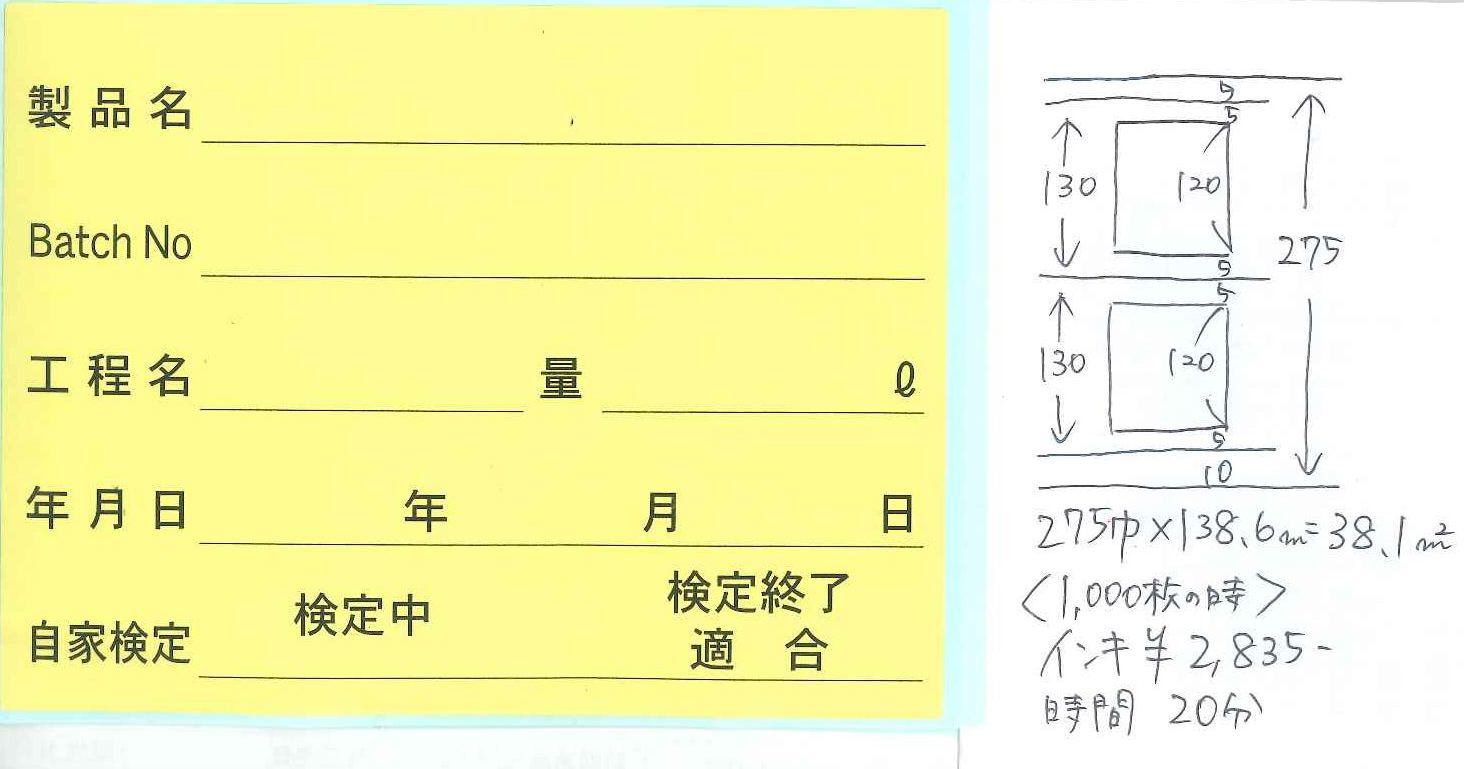 製品名
Batch No
工程名 量 ℓ
年月日 年 月 日
自家検定 検定中 検定終了
適 合
5
5
130 120
275
5
5
130 120
5
10
275巾×138.6m=38.1m²
〈1,000枚の時〉
インキ¥2,835-
時間 20分